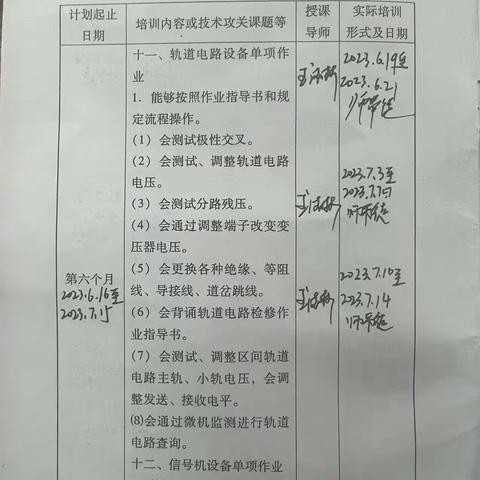 计划起止
日期
培训内容或技术攻关课题等
授课
导师
实际培训
形式及日期
第六个月
2023.6.16至
2023.7.15
十一、轨道电路设备单项作
业
1．能够按照作业指导书和规
定流程操作。
（1）会测试极性交叉。
（2）会测试、调整轨道电路
电压。
（3）会测试分路残压。
（4）会通过调整端子改变变
压器电压。
（5）会更换各种绝缘、等阻
线、导接线、道岔跳线。
（6）会背诵轨道电路检修作
业指导书。
（7）会测试、调整区间轨道
电路主轨、小轨电压，会调
整发送、接收电平。
⑻会通过微机监测进行轨道
电路查询。
十二、信号机设备单项作业
2023.6.19至
2023.6.21
2023.7.3至
2023.7.7日
2023.7.10至
2023.7.14